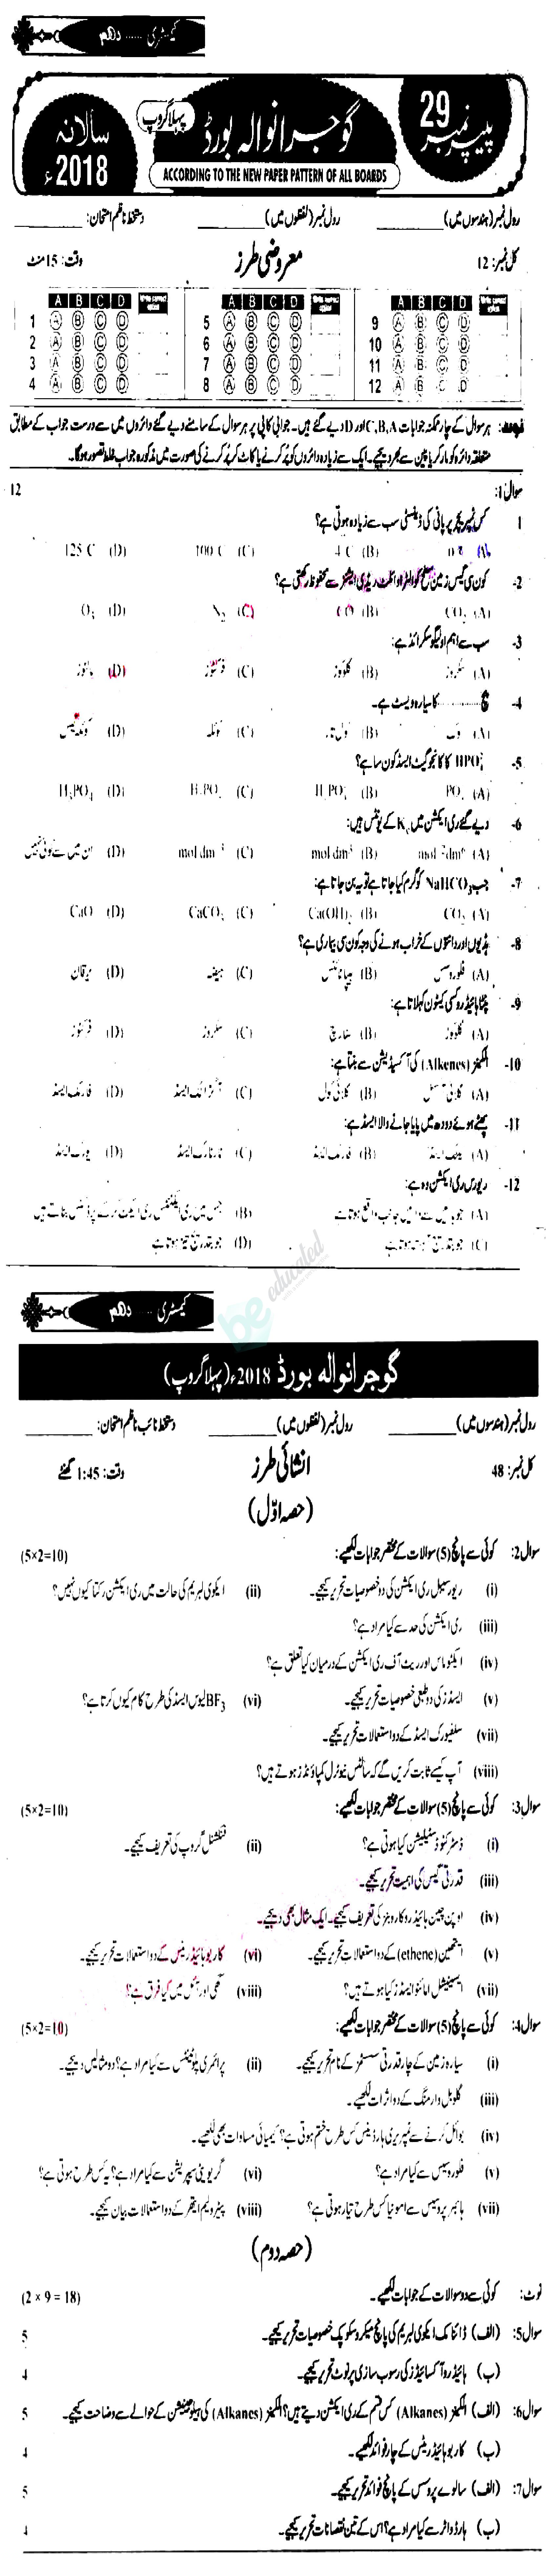 کیمسٹری ...... دہم
پیپر نمبر 29
گوجرانوالہ بورڈ
پہلا گروپ
سالانہ 2018ء
ACCORDING TO THE NEW PAPER PATTERN OF ALL BOARDS
رول نمبر (ہندسوں میں) ________ رول نمبر (لفظوں میں) ________ دستخط ناظم امتحان: ________
کل نمبر: 12 معروضی طرز وقت: 15 منٹ
A B C D Write correct option A B C D Write correct option A B C D Write correct option
1 A B C D 5 A B C D 9 A B C D
2 A B C D 6 A B C D 10 A B C D
3 A B C D 7 A B C D 11 A B C D
4 A B C D 8 A B C D 12 A B C D
نوٹ: ہر سوال کے چار ممکنہ جوابات C,B,A اور D دیے گئے ہیں۔ جوابی کاپی پر ہر سوال کے سامنے دیے گئے دائروں میں سے درست جواب کے مطابق
متعلقہ دائرہ کو مارکر یا پین سے بھر دیجیے۔ ایک سے زیادہ دائروں کو پُر کرنے یا کاٹ کر پُر کرنے کی صورت میں مذکورہ جواب غلط تصور ہوگا۔
سوال 1: 12
1 کس ٹمپریچر پر پانی کی ڈینسٹی سب سے زیادہ ہوتی ہے؟
(B) 4 C (C) 100 C (D) 125 C
2- کون سی گیس زمین سطح کو الٹراوائلٹ ریڈی ایشنز سے محفوظ رکھتی ہے؟
(A) CO₂ (B) CO (C) N₂ (D) O₃
3- سب سے اہم اولیگو سکرائڈ ہے:
(A) سکروز (B) گلوکوز (C) فرکٹوز (D) مالٹوز
4- ........ کا سیارہ ویسٹ ہے۔
(A) (B) کول تار (C) کوئلہ (D) کوئلہ گیس
5- کا کانجوگیٹ ایسڈ کون سا ہے؟
(A) (B) (C) (D) H₃PO₄
6- دیے گئے ری ایکشن میں Kc کے یونٹس ہیں:
(A) (B) (C) (D) ان میں سے کوئی نہیں
7- جب NaHCO₃ کو گرم کیا جاتا ہے تو یہ بن جاتا ہے:
(A) CO₂ (B) Ca(OH)₂ (C) CaCO₃ (D) CaO
8- ہڈیوں اور دانتوں کے خراب ہونے کی وجہ کون سی بیماری ہے؟
(A) فلوروسس (B) ہیپاٹائٹس (C) ہیضہ (D) یرقان
9- پنٹا ہائیڈروکسی کیٹون کہلاتا ہے:
(A) گلوکوز (B) سٹارچ (C) سکروز (D) فرکٹوز
10- الکینز (Alkenes) کی آکسیڈیشن سے بنتا ہے:
(A) گلائی آکسل (B) گلائی کول (C) آگزالک ایسڈ (D) فارمک ایسڈ
11- پھٹے ہوئے دودھ میں پایا جانے والا ایسڈ ہے:
(A) لیکٹک ایسڈ (B) فارمک ایسڈ (C) ٹارٹارک ایسڈ (D) یورک ایسڈ
12- ریورس ری ایکشن وہ ہے:
(A) جو بائیں سے دائیں جانب واقع ہوتا ہے (B) جس میں ری ایکٹنٹس ری ایکٹ کر کے پروڈکٹس بناتے ہیں
(C) جو بتدریج آہستہ ہوتا ہے (D) جو بتدریج تیز ہوتا ہے
be educated
کیمسٹری ...... دہم
گوجرانوالہ بورڈ 2018ء (پہلا گروپ)
رول نمبر (ہندسوں میں) ________ رول نمبر (لفظوں میں) ________ دستخط نائب ناظم امتحان: ________
کل نمبر: 48 انشائی طرز وقت: 1:45 گھنٹے
(حصہ اوّل)
سوال 2: کوئی سے پانچ (5) سوالات کے مختصر جوابات لکھیے: (5×2=10)
(i) ریورسیبل ری ایکشن کی دو خصوصیات تحریر کیجیے۔ (ii) ایکوی لبریم کی حالت میں ری ایکشن رکتا کیوں نہیں؟
(iii) ری ایکشن کی حد سے کیا مراد ہے؟
(iv) ایکٹو ماس اور ریٹ آف ری ایکشن کے درمیان کیا تعلق ہے؟
(v) ایسڈز کی دو طبعی خصوصیات تحریر کیجیے۔ (vi) BF₃ لیوس ایسڈ کی طرح کام کیوں کرتا ہے؟
(vii) سلفیورک ایسڈ کے دو استعمالات تحریر کیجیے۔
(viii) آپ کیسے ثابت کریں گے کہ سالٹس نیوٹرل کمپاؤنڈز ہوتے ہیں؟
سوال 3: کوئی سے پانچ (5) سوالات کے مختصر جوابات لکھیے: (5×2=10)
(i) ڈسٹرکٹو ڈسٹیلیشن کیا ہوتی ہے؟ (ii) فنکشنل گروپ کی تعریف کیجیے۔
(iii) قدرتی گیس کی اہمیت تحریر کیجیے۔
(iv) اوپن چین ہائیڈروکاربنز کی تعریف کیجیے۔ ایک مثال بھی دیجیے۔
(v) ایتھین (ethene) کے دو استعمالات تحریر کیجیے۔ (vi) کاربوہائیڈریٹس کے دو استعمالات تحریر کیجیے۔
(vii) ایسینشیل امائنو ایسڈز کیا ہوتے ہیں؟ (viii) گھی اور آئل میں کیا فرق ہے؟
سوال 4: کوئی سے پانچ (5) سوالات کے مختصر جوابات لکھیے: (5×2=10)
(i) سیارہ زمین کے چار قدرتی سسٹمز کے نام تحریر کیجیے۔ (ii) پرائمری پلوٹینٹس سے کیا مراد ہے؟ دو مثالیں دیجیے۔
(iii) گلوبل وارمنگ کے دو اثرات لکھیے۔
(iv) بوائل کرنے سے ٹمپریری ہارڈنیس کس طرح ختم ہوتی ہے؟ کیمیائی مساوات بھی لکھیے۔
(v) فلوروسس سے کیا مراد ہے؟ (vi) گریویٹی سپریشن سے کیا مراد ہے؟ یہ کس طرح ہوتی ہے؟
(vii) ہابر پروسیس سے امونیا کس طرح تیار ہوتی ہے؟ (viii) پیٹرولیم ایتھر کے دو استعمالات بیان کیجیے۔
(حصہ دوم)
نوٹ: کوئی سے دو سوالات کے جوابات لکھیے۔ (2 × 9 = 18)
سوال 5: (الف) ڈائنامک ایکوی لبریم کی پانچ میکروسکوپک خصوصیات تحریر کیجیے۔ 5
(ب) ہائیڈروآکسائیڈز کی رسوب سازی پر نوٹ تحریر کیجیے۔ 4
سوال 6: (الف) الکینز (Alkanes) کس قسم کے ری ایکشن دیتے ہیں؟ الکینز (Alkanes) کی ہیلوجینیشن کے حوالے سے وضاحت کیجیے۔ 5
(ب) کاربوہائیڈریٹس کے چار فوائد لکھیے۔ 4
سوال 7: (الف) سالوے پروسس کے پانچ فوائد تحریر کیجیے۔ 5
(ب) ہارڈ واٹر سے کیا مراد ہے؟ اس کے تین نقصانات تحریر کیجیے۔ 4